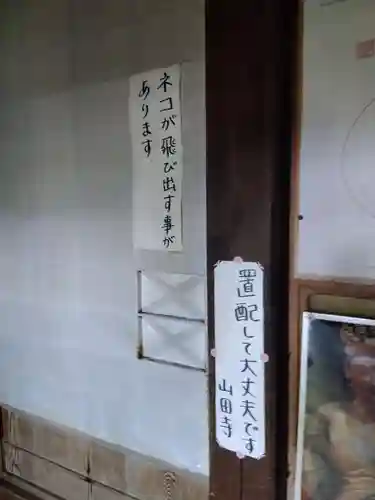 ネコが飛び出す事が
あります
置配して大丈夫です
山田寺